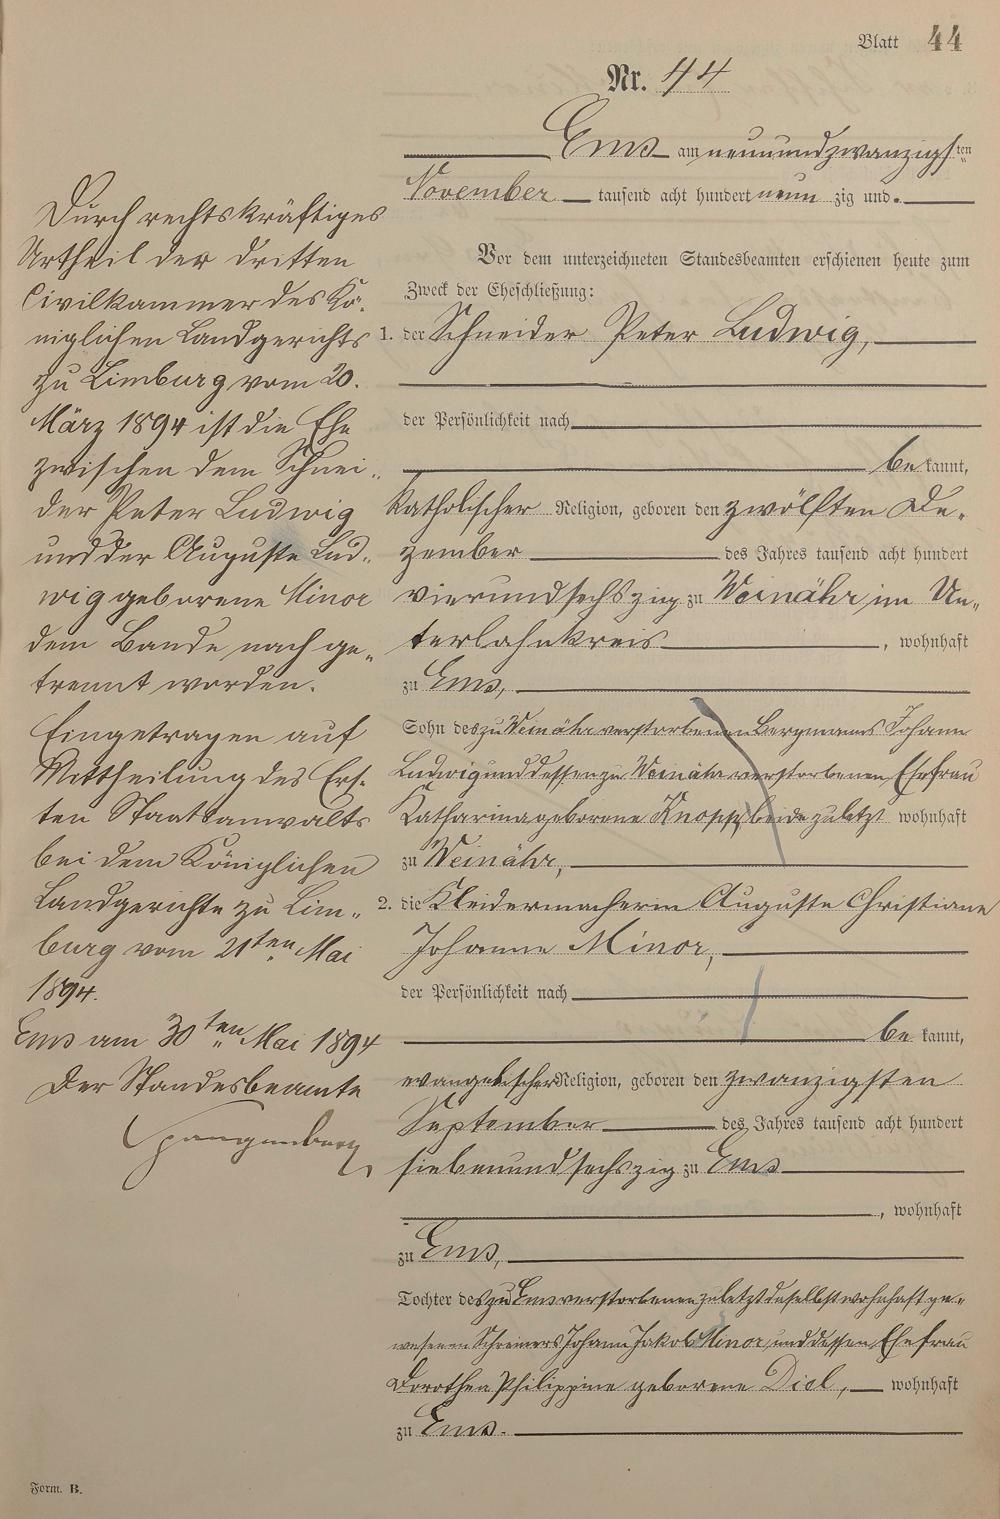 Blatt 44
Nr. 44
Ems am neunundzwanzigsten
November tausend acht hundert neunzig und .
Vor dem unterzeichneten Standesbeamten erschienen heute zum
Zweck der Eheschließung:
1. der Schneider Peter Ludwig,
der Persönlichkeit nach
bekannt,
katholischer Religion, geboren den zwölften De-
zember des Jahres tausend acht hundert
vierundsechszig zu Weinähr im Un-
terlahnkreis, wohnhaft
zu Ems,
Sohn des zu Weinähr verstorbenen Bergmanns Johann
Ludwig und dessen zu Weinähr verstorbenen Ehefrau
Katharina geborene Knopp, beide zuletzt wohnhaft
zu Weinähr,
2. die Kleidermacherin Auguste Christiane
Johanne Minor,
der Persönlichkeit nach
bekannt,
evangelischer Religion, geboren den zwanzigsten
September des Jahres tausend acht hundert
siebenundsechszig zu Ems
, wohnhaft
zu Ems,
Tochter des zu Ems verstorbenen zuletzt daselbst wohnhaft ge-
wesenen Schreiners Johann Jakob Minor, und dessen Ehefrau
Dorothea Philippine geborene Diel, wohnhaft
zu Ems.
Durch rechtskräftiges
Urtheil der dritten
Civilkammer des Kö-
niglichen Landgerichts
zu Limburg vom 20.
März 1894 ist die Ehe
zwischen dem Schnei-
der Peter Ludwig
und der Auguste Lud-
wig geborene Minor
dem Bande nach ge-
trennt worden.
Eingetragen auf
Mittheilung des Ers-
ten Staatsanwalts
bei dem Königlichen
Landgerichte zu Lim-
burg vom 21ten Mai
1894.
Ems am 30ten Mai 1894
Der Standesbeamte
Spangenberg
Form. B.